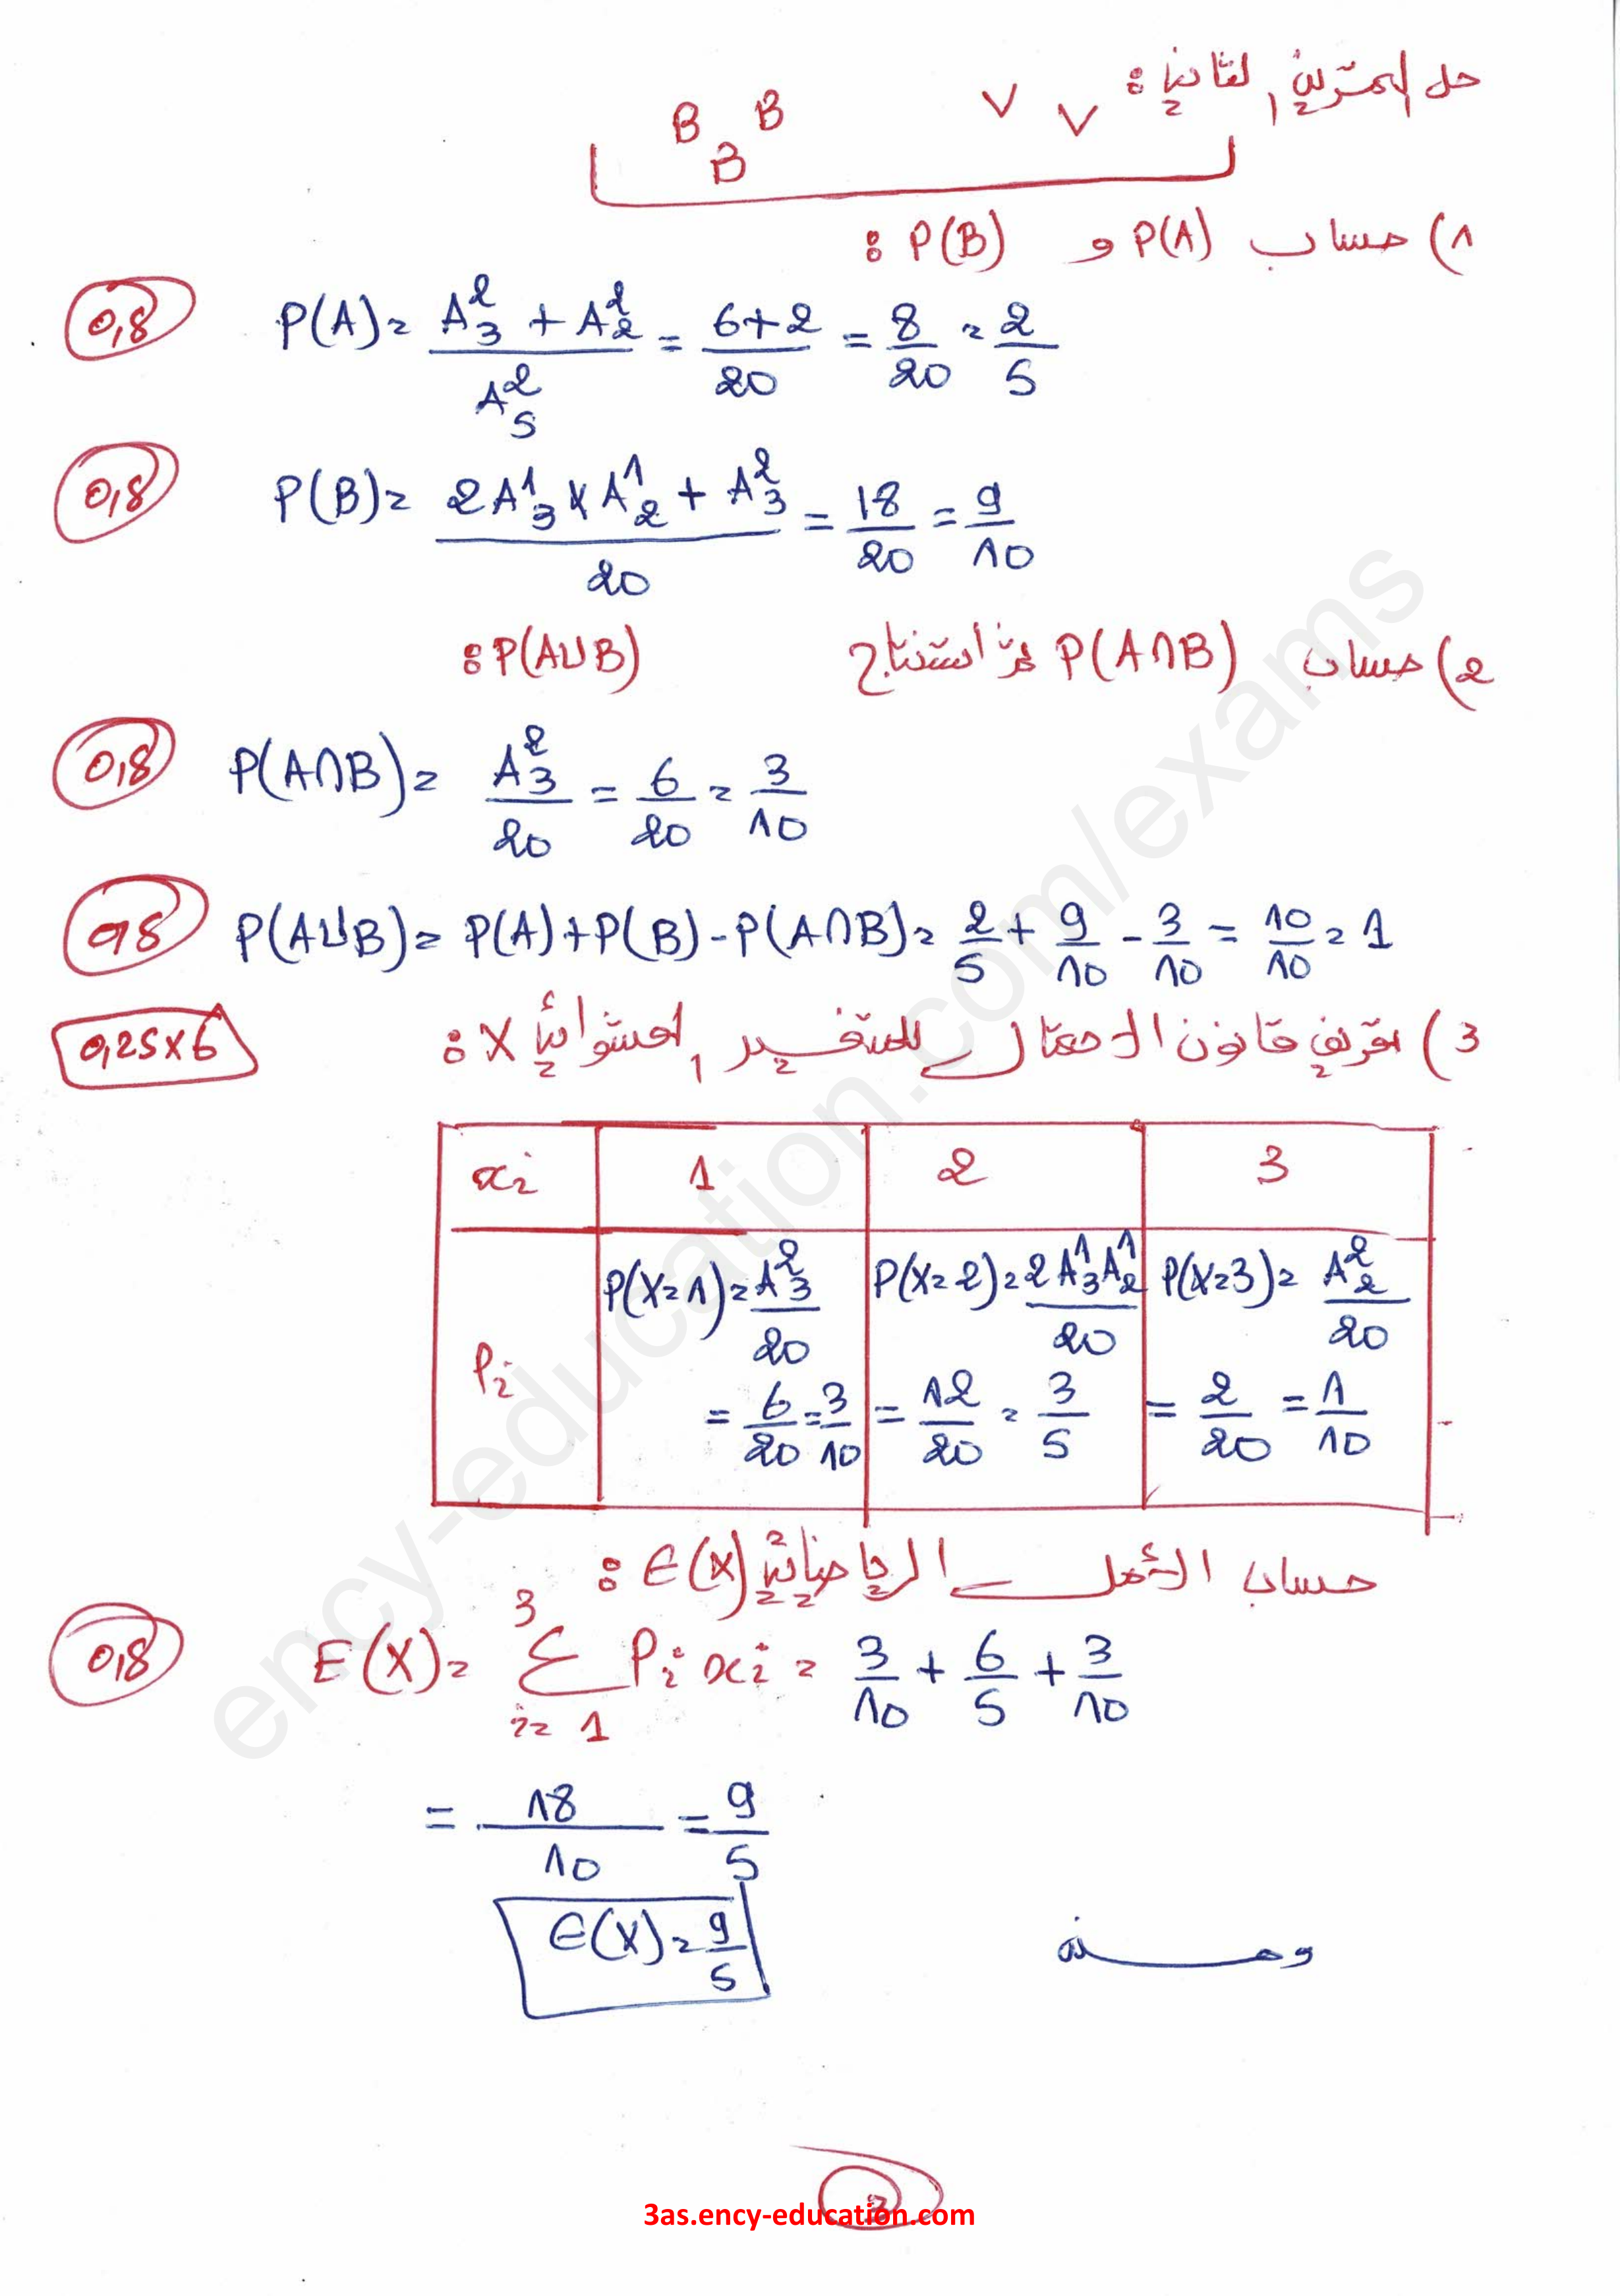 حل التمرين الثاني :
B B B V V
1) حساب P(A) و P(B) :
0,8 P(A) = (A_3^2 + A_2^2)/A_5^2 = (6+2)/20 = 8/20 = 2/5
0,8 P(B) = (2A_3^1 × A_2^1 + A_3^2)/20 = 18/20 = 9/10
2) حساب P(A∩B) ثم استنتاج P(A∪B) :
0,8 P(A∩B) = A_3^2/20 = 6/20 = 3/10
0,8 P(A∪B) = P(A) + P(B) - P(A∩B) = 2/5 + 9/10 - 3/10 = 10/10 = 1
3) تعريف قانون الاحتمال للمتغير العشوائي X :
0,25×6
x_i 1 2 3
P_i P(X=1) = A_3^2/20 = 6/20 = 3/10 P(X=2) = 2A_3^1 A_2^1/20 = 12/20 = 3/5 P(X=3) = A_2^2/20 = 2/20 = 1/10
حساب الأمل الرياضياتي E(X) :
0,8 E(X) = Σ_{i=1}^{3} P_i x_i = 3/10 + 6/5 + 3/10
= 18/10 = 9/5
ومنه E(X) = 9/5
3as.ency-education.com
ency-education.com/exams